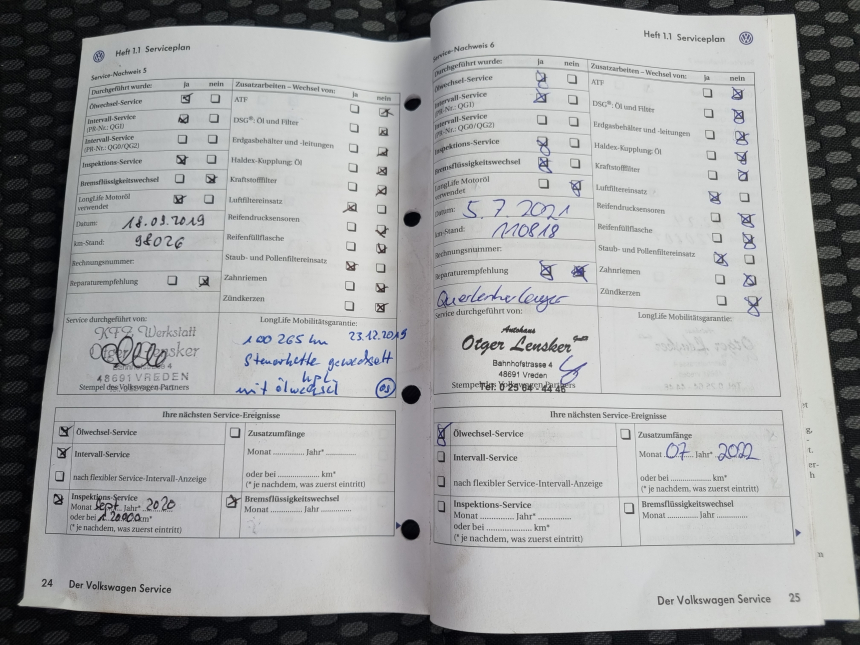 Heft 1.1 Serviceplan
Service-Nachweis 5
Durchgeführt wurde: ja nein
Ölwechsel-Service
Intervall-Service
(PR-Nr.: QG1)
Intervall-Service
(PR-Nr.: QG0/QG2)
Inspektions-Service
Bremsflüssigkeitswechsel
LongLife Motoröl
verwendet
Datum: 18.09.2019
km-Stand: 98026
Rechnungsnummer:
Reparaturempfehlung
Zusatzarbeiten – Wechsel von: ja nein
ATF
DSG®: Öl und Filter
Erdgasbehälter und -leitungen
Haldex-Kupplung: Öl
Kraftstofffilter
Luftfiltereinsatz
Reifendrucksensoren
Reifenfüllflasche
Staub- und Pollenfiltereinsatz
Zahnriemen
Zündkerzen
Service durchgeführt von:
KFZ Werkstatt
Otger Lensker
48691 VREDEN
Stempel des Volkswagen Partners
LongLife Mobilitätsgarantie:
100 265 km 23.12.2019
Steuerkette gewechselt
kpl.
mit Ölwechsel
Ihre nächsten Service-Ereignisse
Ölwechsel-Service
Intervall-Service
nach flexibler Service-Intervall-Anzeige
Inspektions-Service
Monat Sept. Jahr* 2020
oder bei 120000 km*
(* je nachdem, was zuerst eintritt)
Zusatzumfänge
Monat Jahr*
oder bei km*
(* je nachdem, was zuerst eintritt)
Bremsflüssigkeitswechsel
Monat Jahr
24 Der Volkswagen Service
Heft 1.1 Serviceplan
Service-Nachweis 6
Durchgeführt wurde: ja nein
Ölwechsel-Service
Intervall-Service
(PR-Nr.: QG1)
Intervall-Service
(PR-Nr.: QG0/QG2)
Inspektions-Service
Bremsflüssigkeitswechsel
LongLife Motoröl
verwendet
Datum: 5.7.2021
km-Stand: 110818
Rechnungsnummer:
Reparaturempfehlung
Querlenkerlager
Zusatzarbeiten – Wechsel von: ja nein
ATF
DSG®: Öl und Filter
Erdgasbehälter und -leitungen
Haldex-Kupplung: Öl
Kraftstofffilter
Luftfiltereinsatz
Reifendrucksensoren
Reifenfüllflasche
Staub- und Pollenfiltereinsatz
Zahnriemen
Zündkerzen
Service durchgeführt von:
Autohaus
Otger Lensker GmbH
Bahnhofstrasse 4
48691 Vreden
Tel: 0 25 64 - 44 46
Stempel des Volkswagen Partners
LongLife Mobilitätsgarantie:
Ihre nächsten Service-Ereignisse
Ölwechsel-Service
Intervall-Service
nach flexibler Service-Intervall-Anzeige
Inspektions-Service
Monat Jahr*
oder bei km*
(* je nachdem, was zuerst eintritt)
Zusatzumfänge
Monat 07 Jahr* 2022
oder bei km*
(* je nachdem, was zuerst eintritt)
Bremsflüssigkeitswechsel
Monat Jahr
Der Volkswagen Service 25